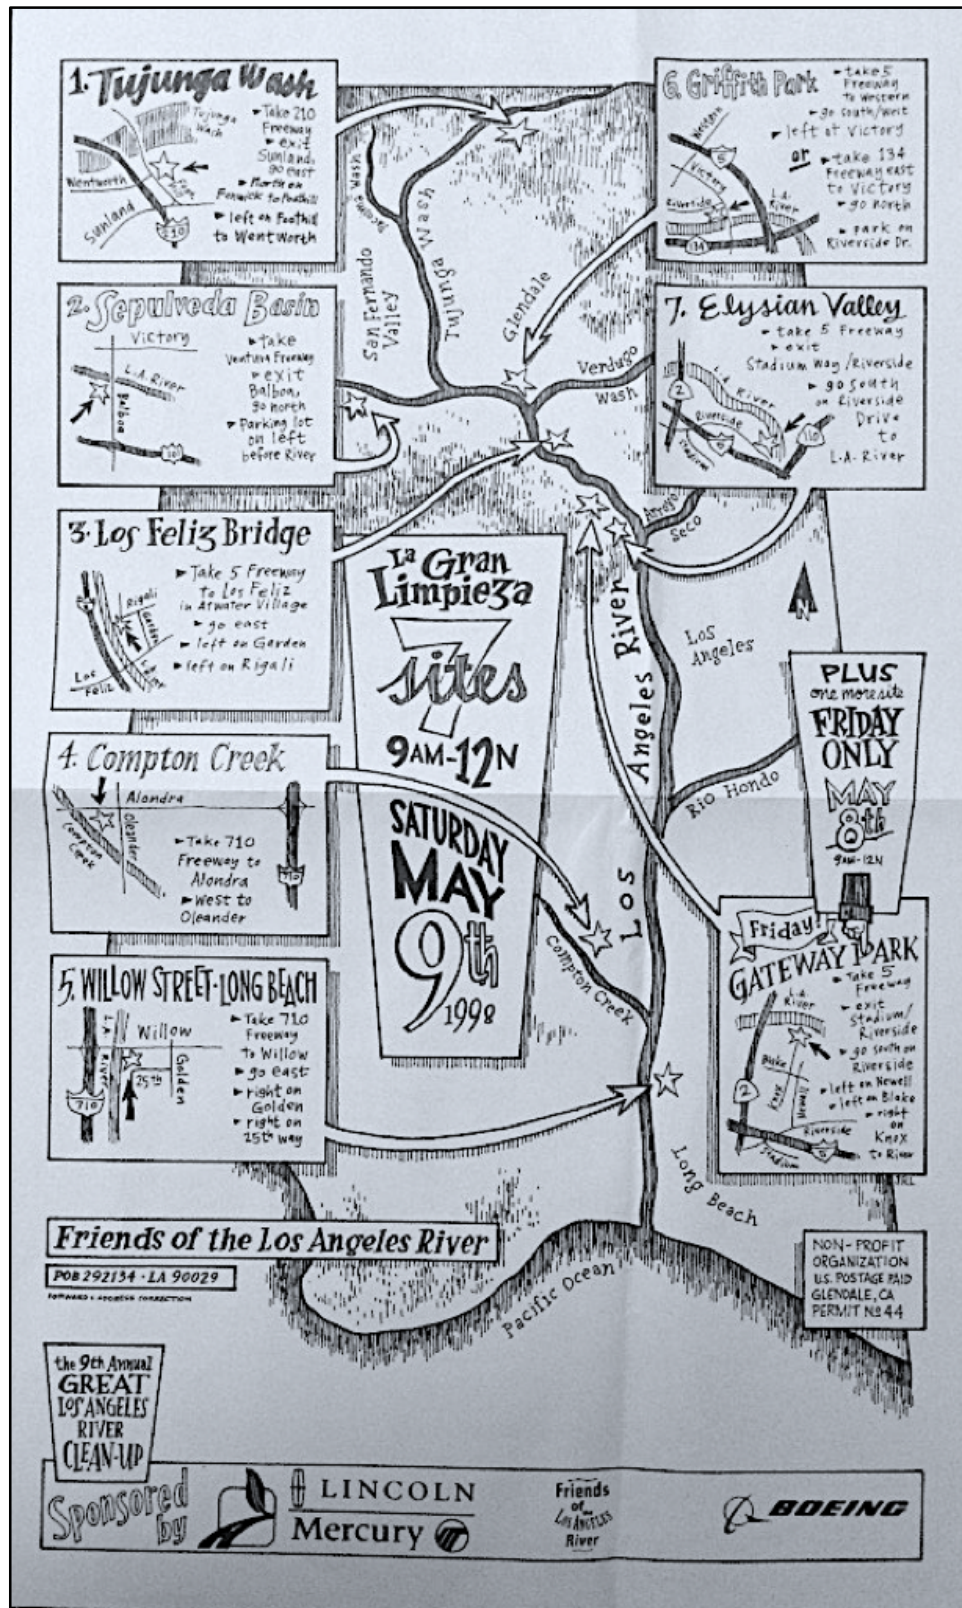 1. Tujunga Wash
Tujunga
Wash
Wentworth
Sunland
210
▸ Take 210
Freeway
▸ exit
Sunland,
go east
▸ North on
Fenwick to Foothill
▸ left on Foothill
to Wentworth
2. Sepulveda Basin
Victory
L.A. River
Balboa
101
▸ take
Ventura Freeway
▸ exit
Balboa,
go north
▸ Parking lot
on left
before River
3. Los Feliz Bridge
Rigali
Garden
Los
Feliz
▸ Take 5 Freeway
to Los Feliz
in Atwater Village
▸ go east
▸ left on Garden
▸ left on Rigali
4. Compton Creek
Alondra
Oleander
Compton
Creek
710
▸ Take 710
Freeway to
Alondra
▸ West to
Oleander
5. WILLOW STREET-LONG BEACH
L.A.
River
Willow
25th
Golden
710
▸ Take 710
Freeway
to Willow
▸ go east
▸ right on
Golden
▸ right on
25th way
6. Griffith Park
Western
5
Victory
Riverside
L.A.
River
134
▸ take 5
Freeway
to Western
▸ go south/west
▸ left at Victory
or ▸ take 134
Freeway east
to Victory
▸ go north
▸ park on
Riverside Dr.
7. Elysian Valley
2
L.A. River
Riverside
Stadium
5
110
▸ take 5 Freeway
▸ exit
Stadium Way/Riverside
▸ go south
on Riverside
Drive
to
L.A. River
Pacoima Wash
Tujunga Wash
San Fernando
Valley
Glendale
Verdugo
Wash
Arroyo
Seco
Los Angeles River
Los
Angeles
N
Rio Hondo
Compton Creek
Long Beach
Pacific Ocean
La Gran
Limpieza
7
sites
9AM-12N
SATURDAY
MAY
9th
1998
PLUS
one more site
FRIDAY
ONLY
MAY
8th
9AM-12N
Friday!
GATEWAY PARK
L.A.
River
Blake
Knox
Newell
2
Riverside
Stadium
5
▸ Take 5
Freeway
▸ exit
Stadium/
Riverside
▸ go south on
Riverside
▸ left on Newell
▸ left on Blake
▸ right
on
Knox
to River
Friends of the Los Angeles River
POB 292134 · LA 90029
FORWARD & ADDRESS CORRECTION
NON-PROFIT
ORGANIZATION
U.S. POSTAGE PAID
GLENDALE, CA
PERMIT No 44
the 9th Annual
GREAT
LOS ANGELES
RIVER
CLEAN-UP
Sponsored
by
LINCOLN
Mercury
Friends
of
the
LOS ANGELES
River
BOEING